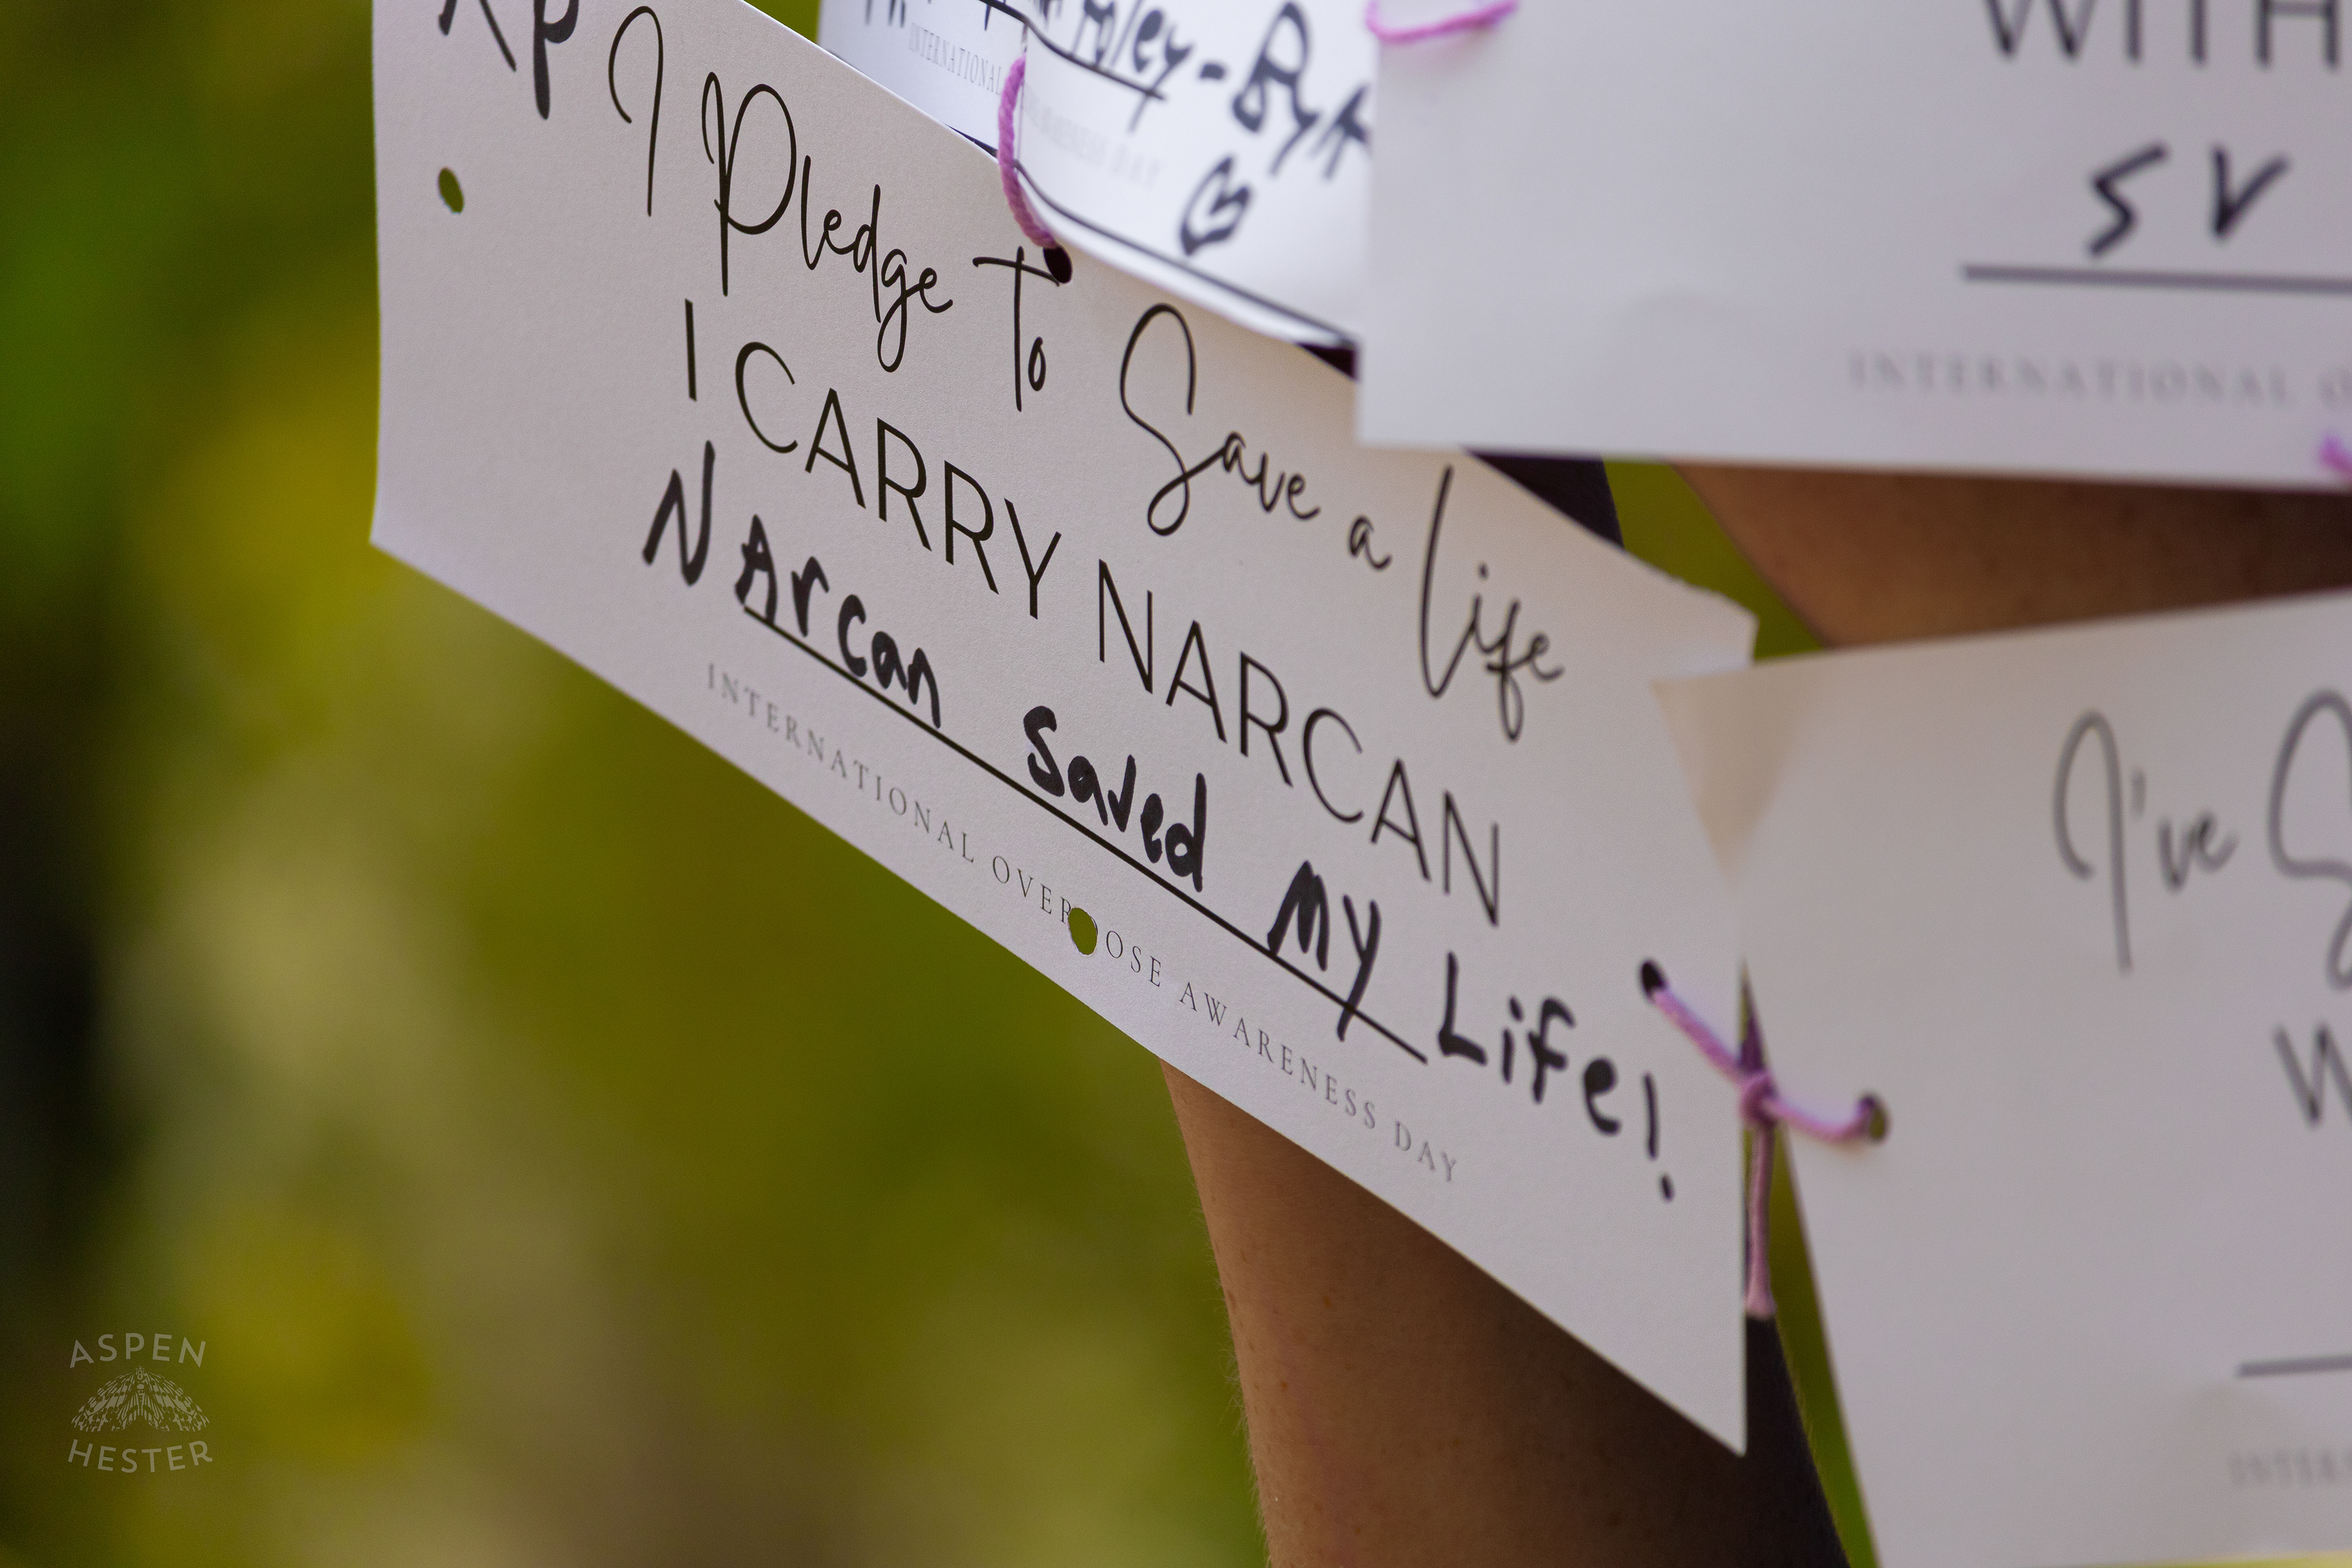 I Pledge To Save a Life
I CARRY NARCAN
NArcan Saved My Life!
INTERNATIONAL OVERDOSE AWARENESS DAY
INTERNATIONAL
AWARENESS DAY
WITH
SV
INTERNATIONAL
I've
ASPEN
HESTER